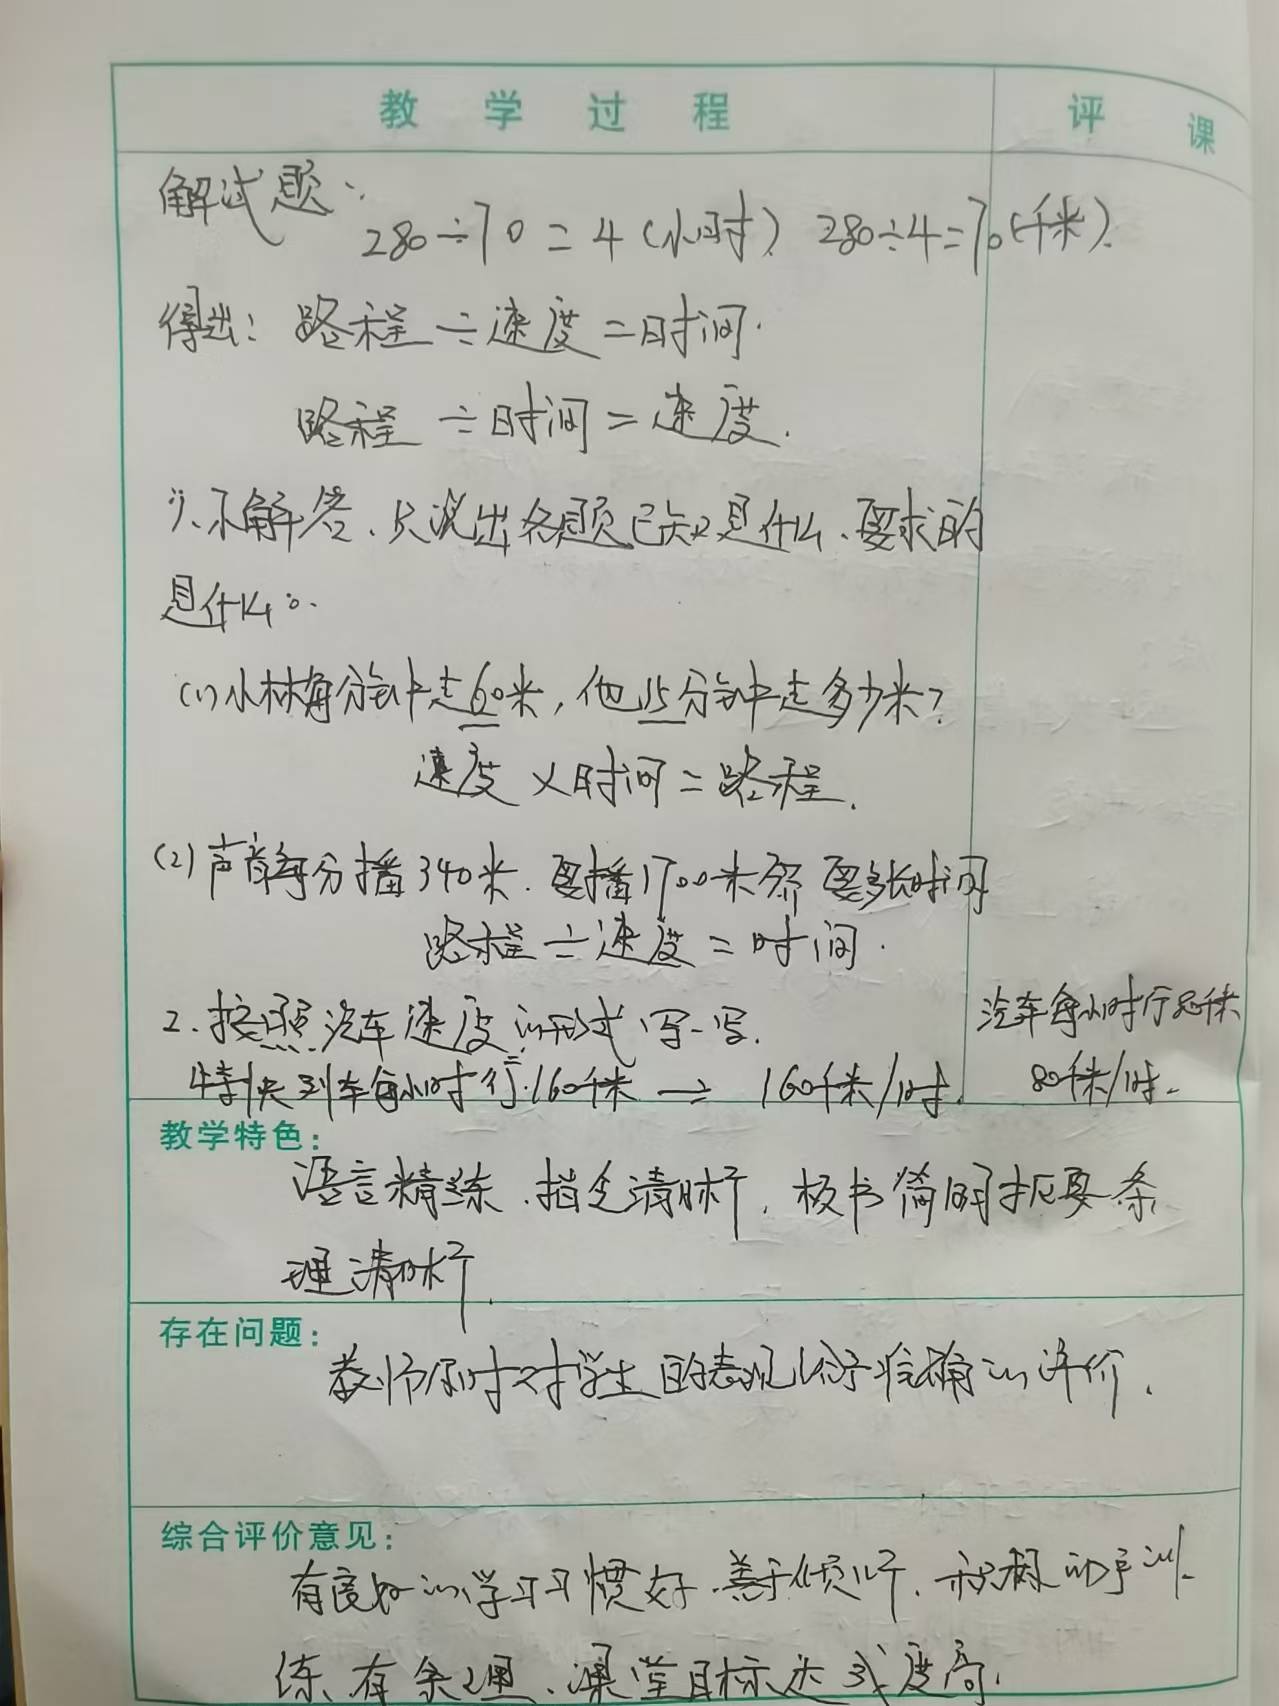 教 学 过 程 评 课
解试题:
280÷70=4(小时) 280÷4=70(千米).
得出: 路程÷速度=时间.
路程÷时间=速度.
1、不解答、只说出各题已知是什么、要求的
是什么。
(1)小林每分钟走60米,他15分钟走多少米?
速度×时间=路程.
(2)声音每分播340米.要播1700米 要多长时间
路程÷速度=时间.
2.按照汽车速度的形式写一写. 汽车每小时行80千米
特快列车每小时行160千米 → 160千米/时. 80千米/时.
教学特色:
语言精练.指令清晰,板书简明扼要条
理清晰.
存在问题:
教师及时对学生的表现给予准确的评价.
综合评价意见:
有良好的学习习惯好.善于倾听.积极动手训
练、有条理、课堂目标达成度高.